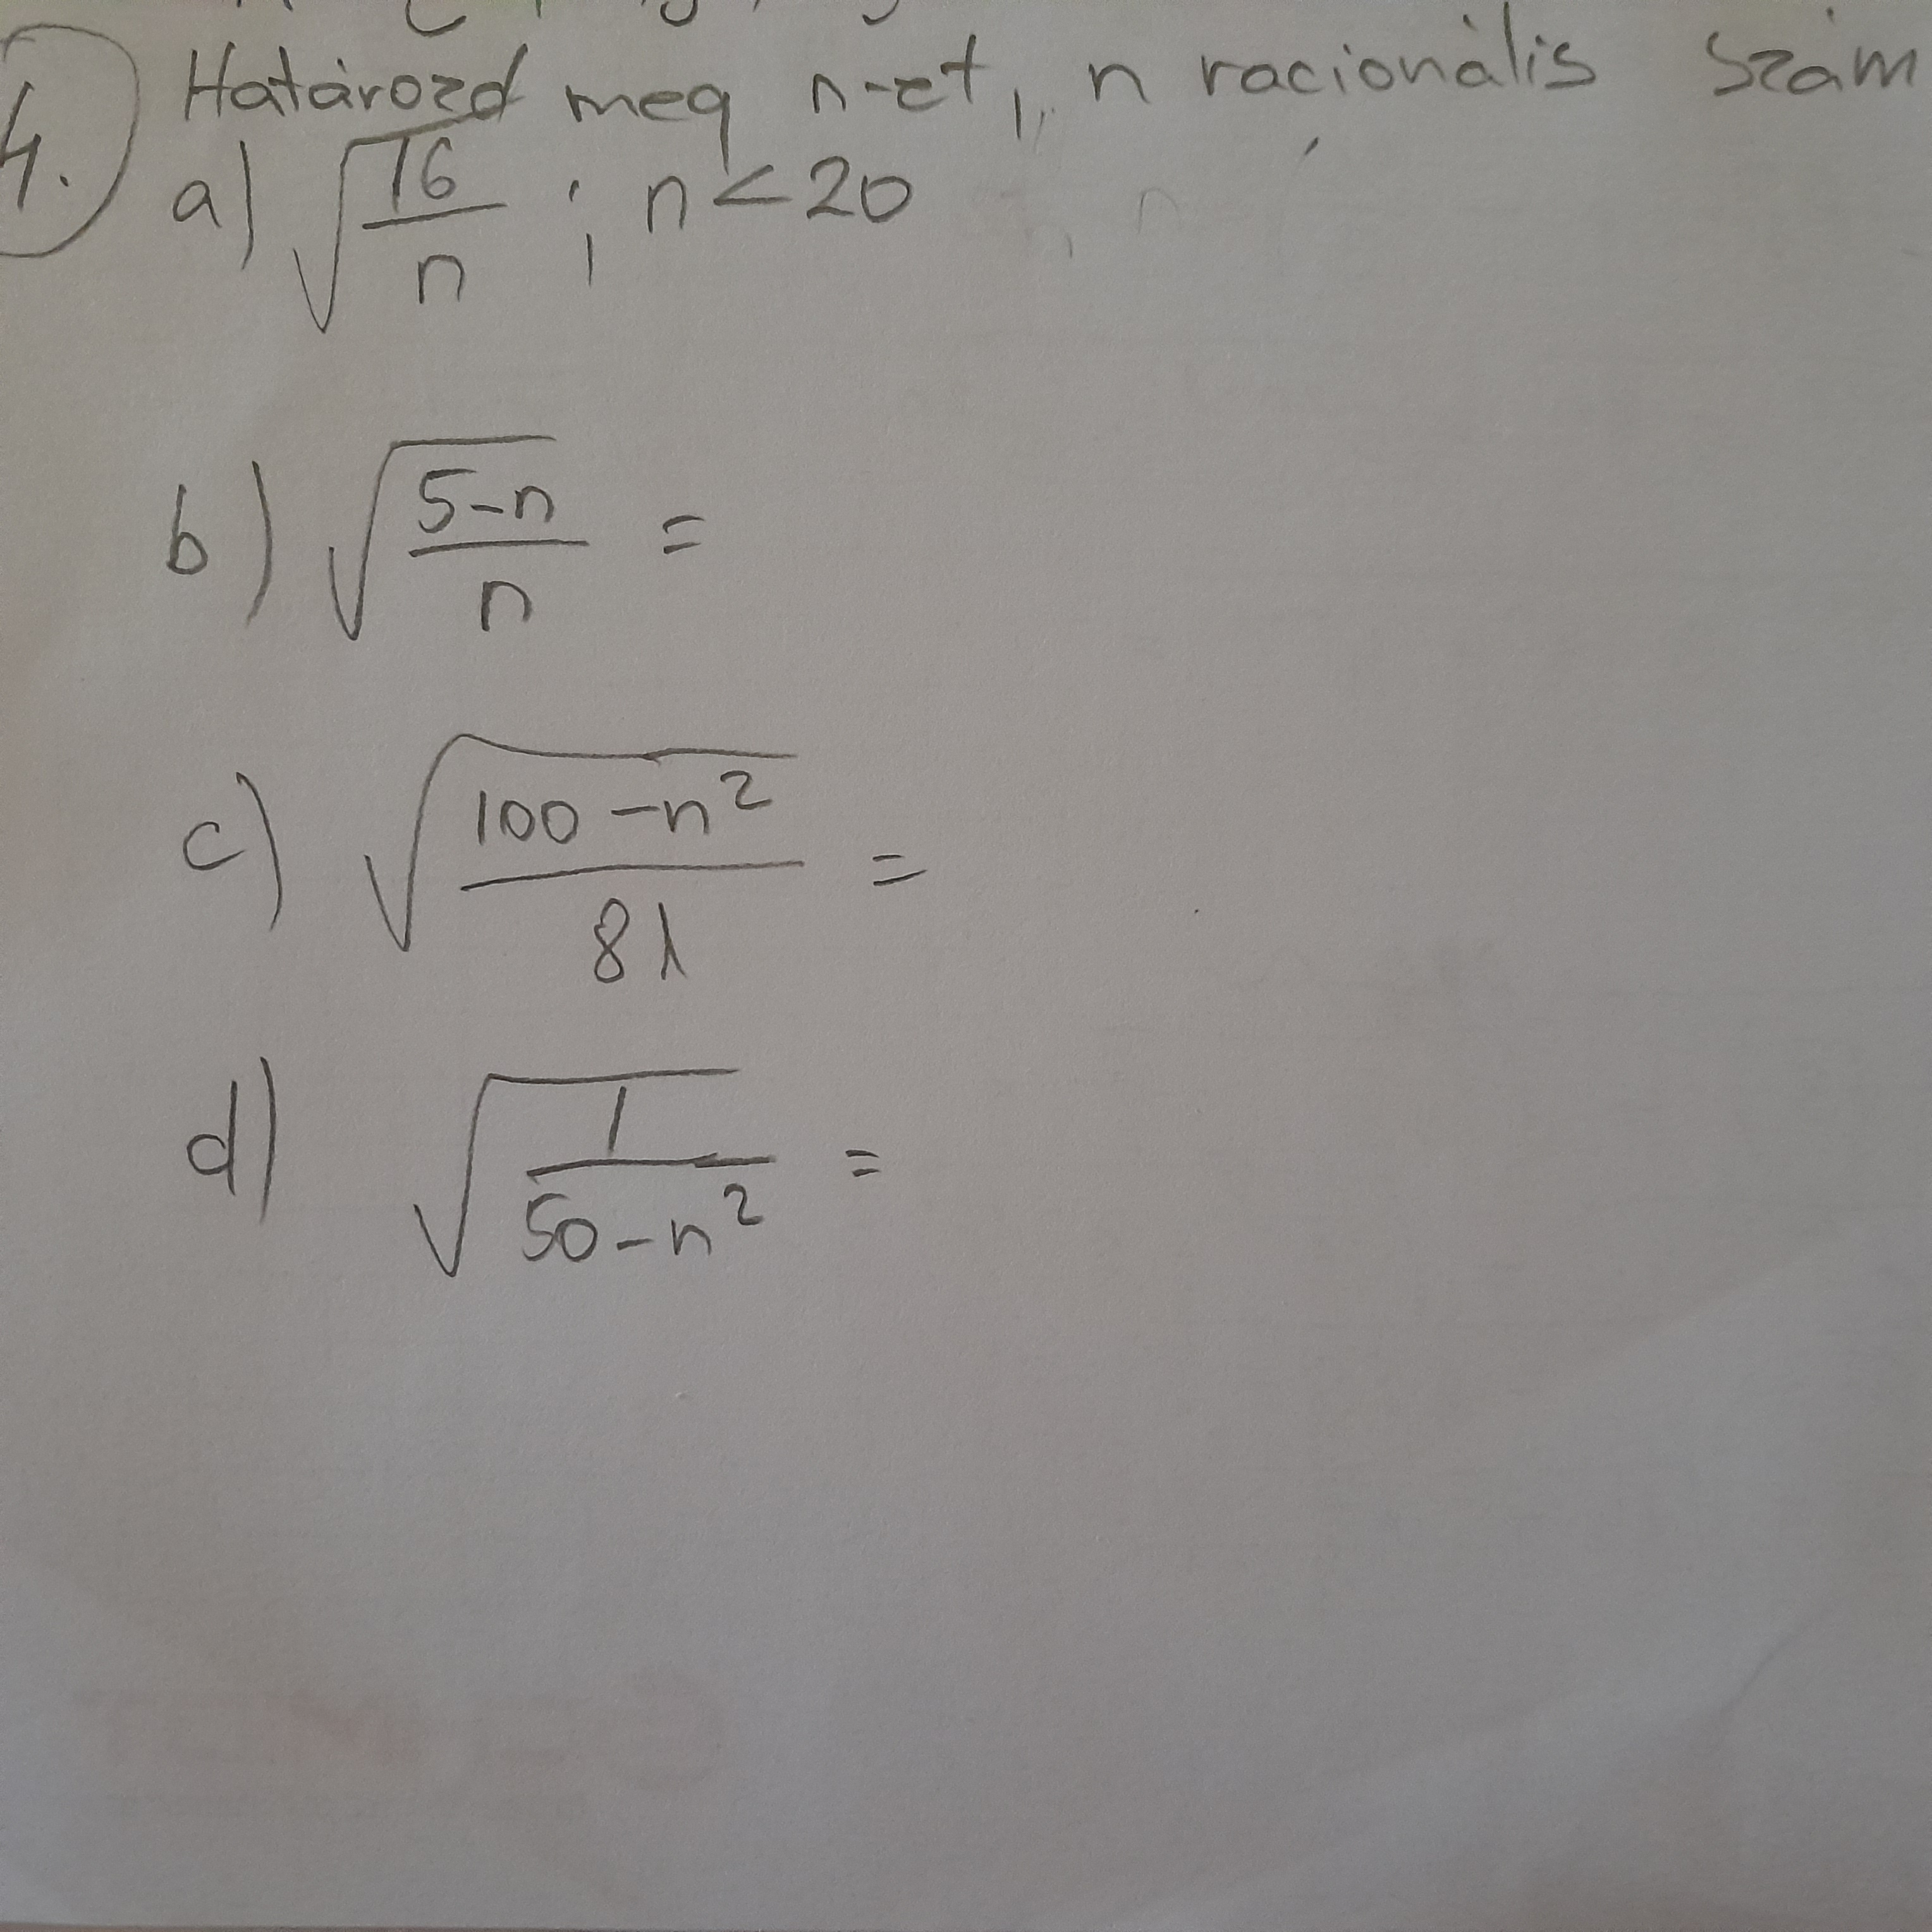 4. Határozd meg n-et, n racionális szám
a) √(16/n) ; n<20
b) √((5-n)/n) =
c) √((100-n²)/81) =
d) √(1/(50-n²)) =